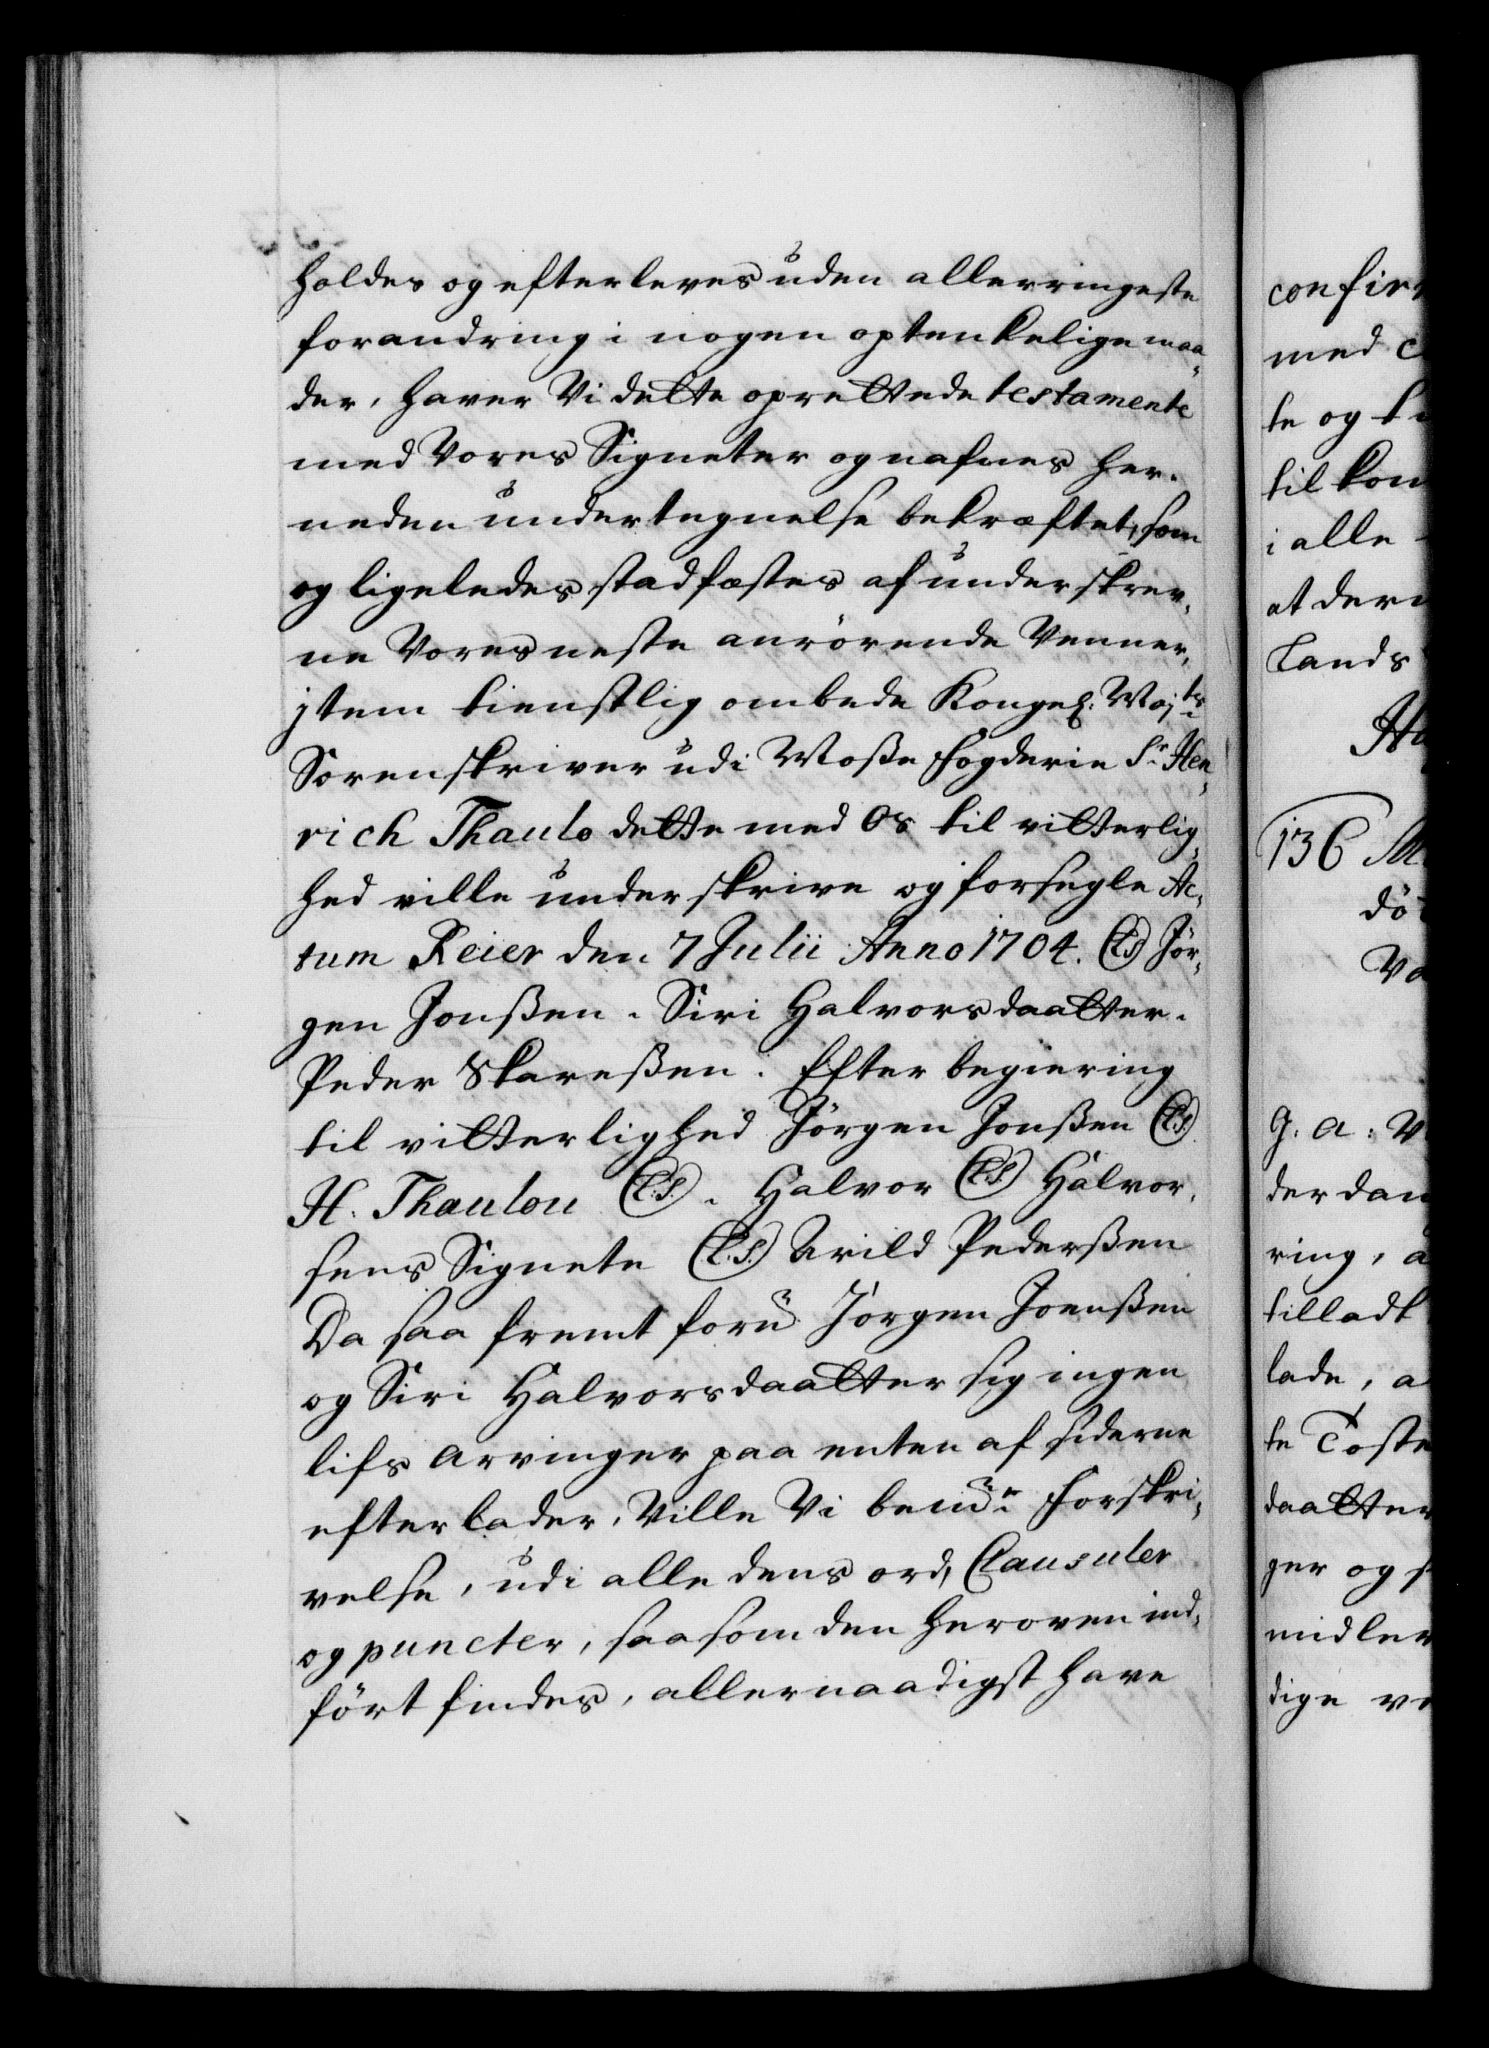 holdes og efterleves uden allerringeste
forandring i nogen optenkelige maa„
der, haver Vi dette oprettede testamente
med Vores Signeter og nafnes her„
neden undertegnelse bekræftet, som
og ligeledes stadfæstes af underskrev„
ne Vores neste anrörende Venner,
jtem tienstlig ombede Kongel: Maj:ts
Sorenskriver udi Moße fogderie Sr Hen„
rich Thaulo dette med Os til vitterlig„
hed ville underskrive og forsegle Ac„
tum Reier den 7 Julii Anno 1704. (LS) Jör„
gen Jonßen. Siri Halvorsdaatter.
Peder Skareßen. Efter begiering
til vitterlighed Jörgen Jonßen (L.S.)
H. Thaulou (L.S.). Halvor (L.S.) Halvor„
sens Signete (L.S.) Arild Pederßen
Da saa fremt foru Jörgen Joenßen
og Siri Halvorsdaatter sig ingen
lifs arvinger paa enten af siderne
efterlader, Ville Vi bemte forskri„
velse, udi alle dens ord, Clausuler
og puncter, saasom den heroven ind„
fört findes, allernaadigst have
confir
med
te og
til kon
i alle
at der
Lands
136
dö
Va
G. A: V
der dan
ring, a
tilladt
lade, a
te Toste
daatter
ger og
midler
dige